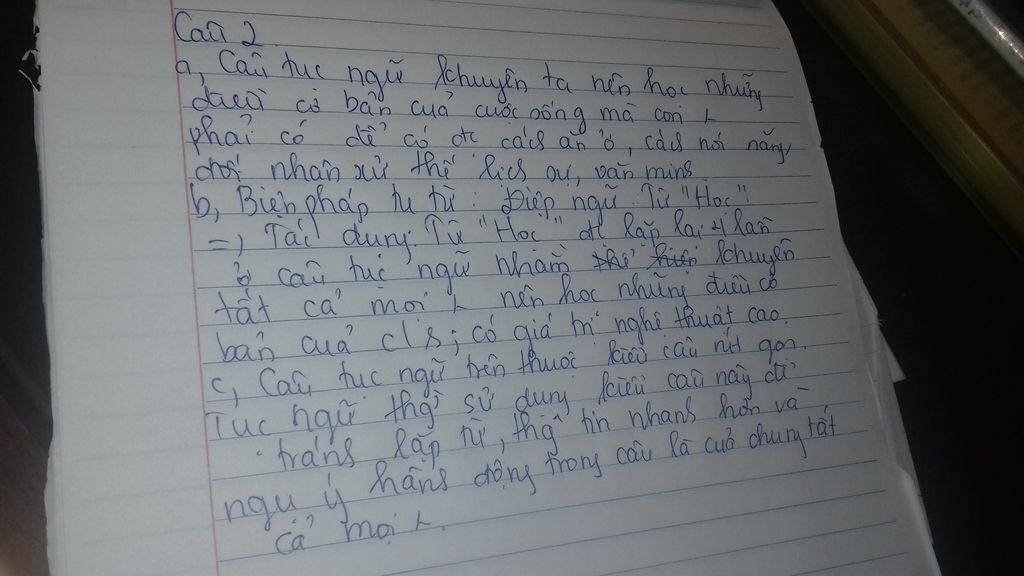 Câu 2
a, Câu tục ngữ khuyên ta nên học những
điều cơ bản của cuộc sống mà con
phải có để có đc cách ăn ở, cách nói năng,
đối nhân xử thế lịch sự, văn minh
b, Biện pháp tu từ: Điệp ngữ Từ "Học".
=) Tác dụng: Từ "Học" đc lặp lại 4 lần
ở câu tục ngữ nhằm khuyên
tất cả mọi nên học những điều cơ
bản của c/s; có giá trị nghệ thuật cao.
c, Câu tục ngữ trên thuộc kiểu câu rút gọn.
Tục ngữ thg sử dụng kiểu câu này để
tránh lặp từ, thg tin nhanh hơn và
ngụ ý hành động trong câu là của chung tất
cả mọi